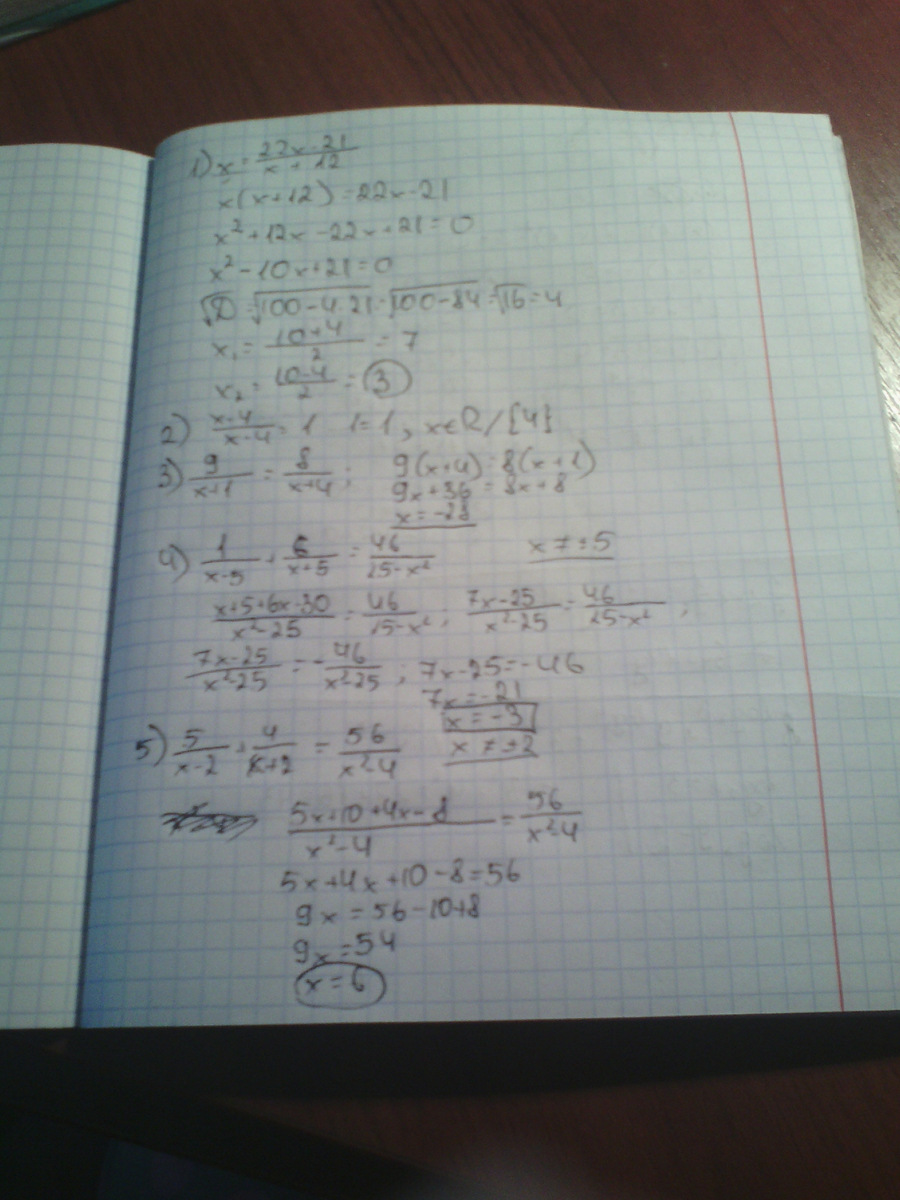 1) x = (22x-21)/(x+12)
x(x+12) = 22x-21
x²+12x-22x+21=0
x²-10x+21=0
√D = √100-4·21 = √100-84 = √16 = 4
x₁ = (10+4)/2 = 7
x₂ = (10-4)/2 = 3
2) (x-4)/(x-4) = 1 1=1, x∈R/{4}
3) 9/(x+1) = 8/(x+4); 9(x+4)=8(x+1)
9x+36 = 8x+8
x=-28
4) 1/(x-5) + 6/(x+5) = 46/(25-x²) x≠±5
(x+5+6x-30)/(x²-25) = 46/(25-x²); (7x-25)/(x²-25) = 46/(25-x²);
(7x-25)/(x²-25) = -46/(x²-25); 7x-25=-46
7x=-21
x=-3
5) 5/(x-2) + 4/(x+2) = 56/(x²-4) x≠±2
(5x+10+4x-8)/(x²-4) = 56/(x²-4)
5x+4x+10-8=56
9x=56-10+8
9x=54
x=6